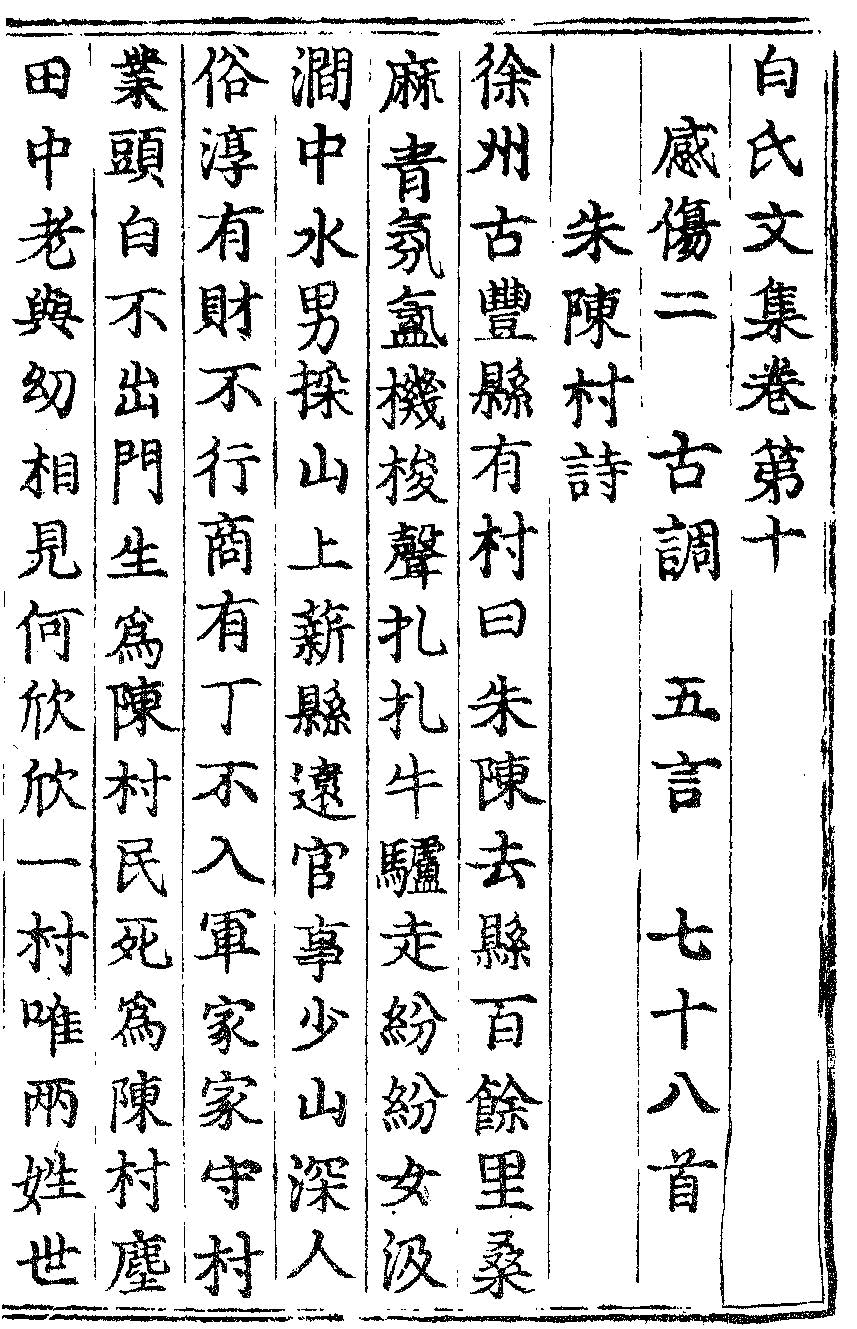 白氏文集卷第十
感傷二 古調 五言 七十八首
朱陳村詩
徐州古豐縣有村曰朱陳去縣百餘里桑
麻青氛氳機梭聲扎扎牛驢走紛紛女汲
澗中水男採山上薪縣遠官事少山深人
俗淳有財不行商有丁不入軍家家守村
業頭白不出門生爲陳村民死爲陳村塵
田中老與幼相見何欣欣一村唯兩姓世